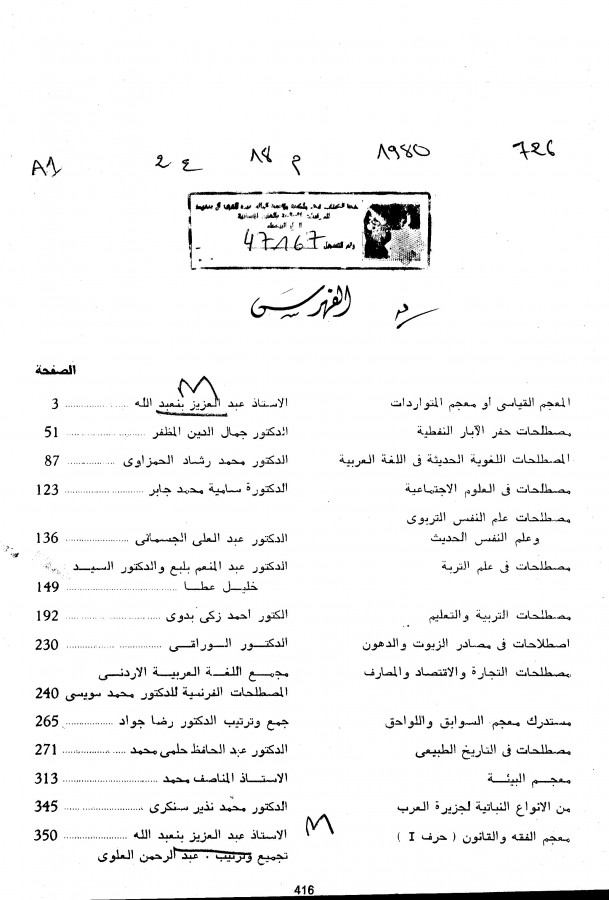 A1 2 ع 18 م 1980 726
ورقم التسجيل 47167
الفهرس
الصفحة
المعجم القياسى أو معجم المتواردات الاستاذ عبد العزيز بنعبد الله 3
مصطلحات حفر الآبار النفطية الدكتور جمال الدين المظفر 51
المصطلحات اللغوية الحديثة فى اللغة العربية الدكتور محمد رشاد الحمزاوى 87
مصطلحات فى العلوم الاجتماعية الدكتورة سامية محمد جابر 123
مصطلحات علم النفس التربوى
وعلم النفس الحديث الدكتور عبد العلى الجسمانى 136
مصطلحات فى علم التربة الدكتور عبد المنعم بلبع والدكتور السيد
خليل عطا 149
مصطلحات التربية والتعليم الكتور احمد زكى بدوى 192
اصطلاحات فى مصادر الزيوت والدهون الدكتور الوراقى 230
مصطلحات التجارة والاقتصاد والمصارف مجمع اللغة العربية الاردنى
المصطلحات الفرنسية للدكتور محمد سويسى 240
مستدرك معجم السوابق واللواحق جمع وترتيب الدكتور رضا جواد 265
مصطلحات فى التاريخ الطبيعى الدكتور عبد الحافظ حلمى محمد 271
معجم البيئة الاستاذ المناصف محمد 313
من الانواع النباتية لجزيرة العرب الدكتور محمد نذير سنكرى 345
معجم الفقه والقانون ( حرف I ) الاستاذ عبد العزيز بنعبد الله 350
تجميع وترتيب . عبد الرحمن العلوى
416